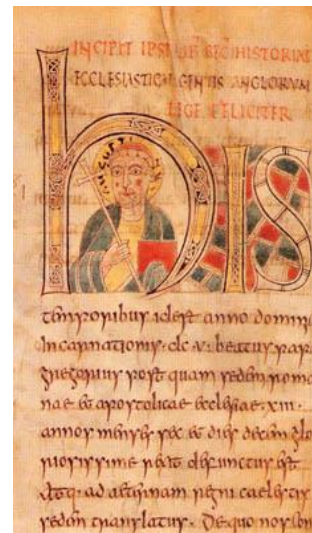 INCIPIT HISTORIAE
ECCLESIASTICAE GENTIS ANGLORUM
LEGE FELICITER
HIS
temporibus id est anno dominic
Incarnationis. dc.v. beatus papa
gregorius post quam sedem roma
nae et apostolicae ecclesiae .xiii.
annos menses sex et dies decem glo
riosissime rexit defunctus est
Atq; ad aeternam regni caelestis
sedem translatus. De quo nos con